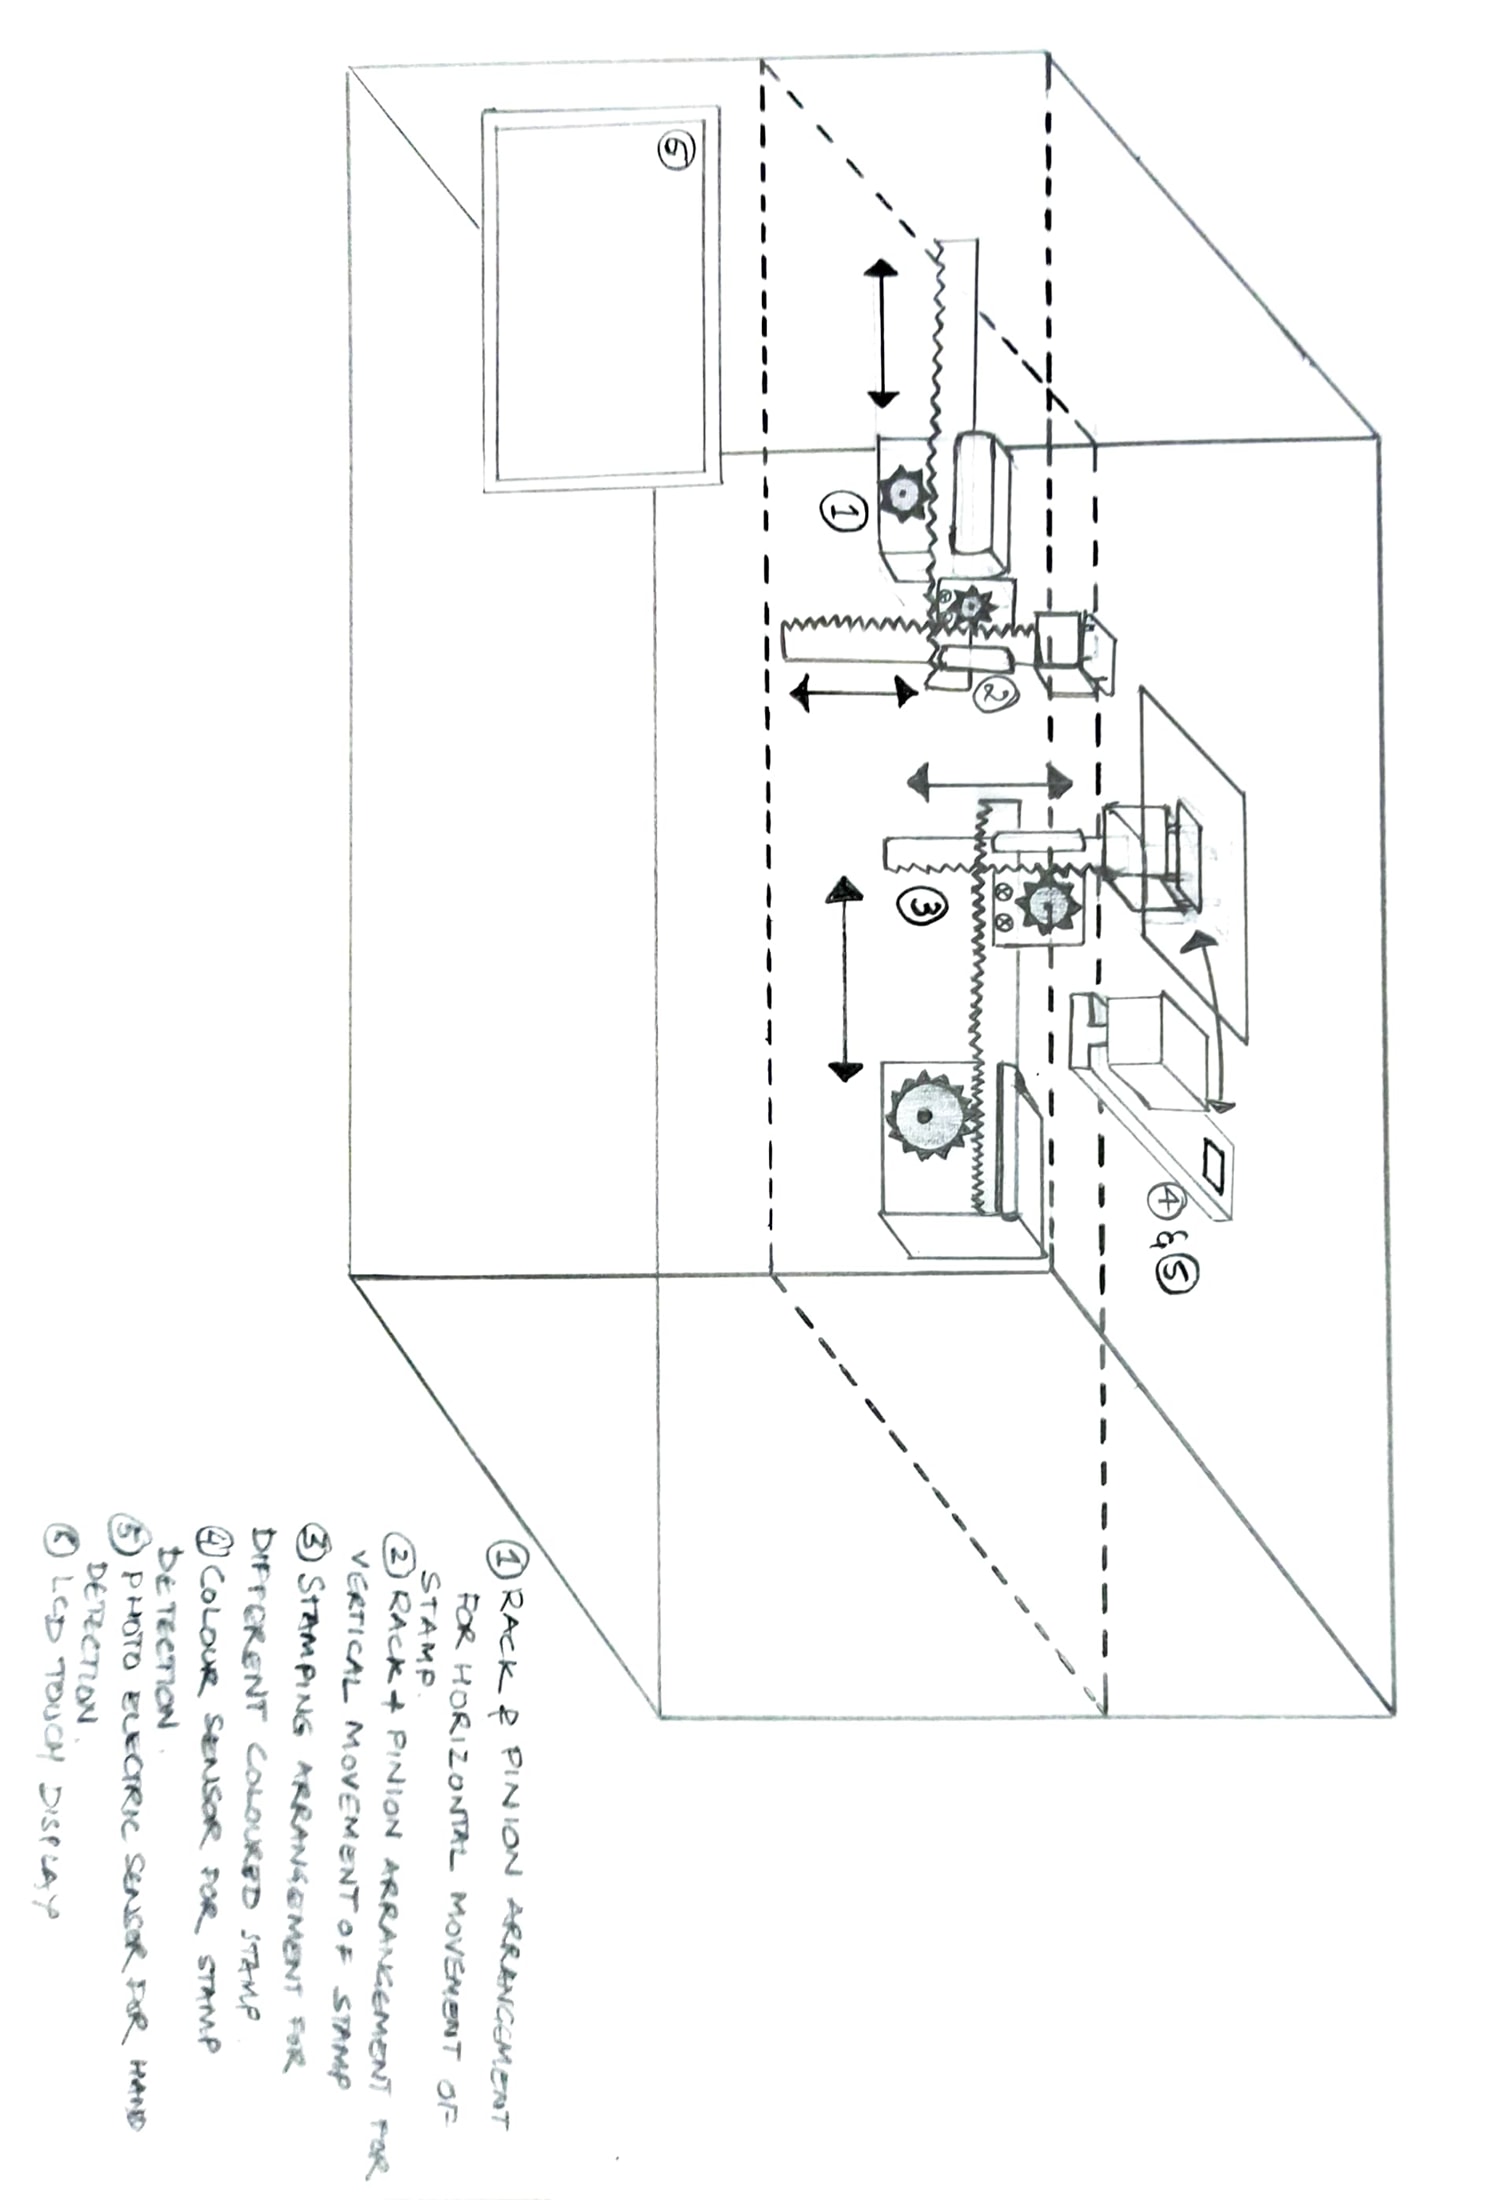 6
1
2
3
4 & 5
1 RACK & PINION ARRANGEMENT
FOR HORIZONTAL MOVEMENT OF
STAMP.
2 RACK + PINION ARRANGEMENT FOR
VERTICAL MOVEMENT OF STAMP
3 STAMPING ARRANGEMENT FOR
DIFFERENT COLOURED STAMP.
4 COLOUR SENSOR FOR STAMP
DETECTION.
5 PHOTO ELECTRIC SENSOR FOR HAND
DETECTION.
6 LCD TOUCH DISPLAY